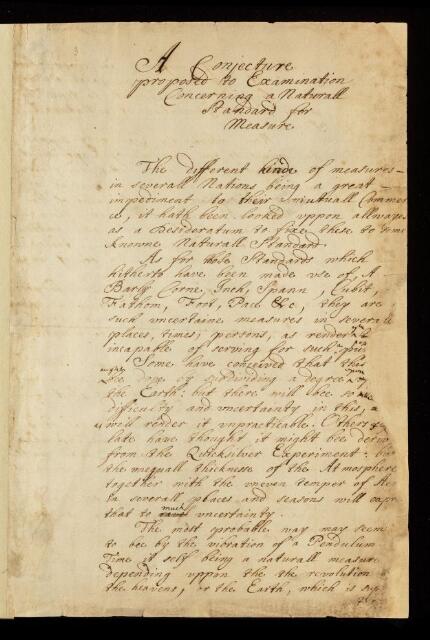 A Conjecture
proposed to Examination
Concerning a Naturall
Standard for
Measure
The different kinde of measures
in severall Nations being a great
impediment to their mutuall Commer
ce, it hath been looked uppon allwayes
as a Desideratum to fixe these to some
knowne Naturall Standard.
As for those Standards which
hitherto have been made use of, A
Barly Corne, Inch, Spann, Cubit,
Fathom, Foot, Pace &c, they are
such uncertaine measures in severall
places, times, persons, as render
incapable of serving for such a
Some have conceived that this
might be don by subdividing a degree
the Earth: but there will bee so
difficulty and uncertainty in this, as
will render it unpracticable. Others of
late have thought it might bee
from the Quicksilver Experiment:
the unequall thicknesse of the Atmosphere
together with the uneven temper of the
in severall places and seasons will
that to much uncertainty.
The most probable way may seem
to bee by the vibration of a Pendulum
Time it self being a naturall measure
depending uppon the the revolution
the heavens, or the Earth, which is